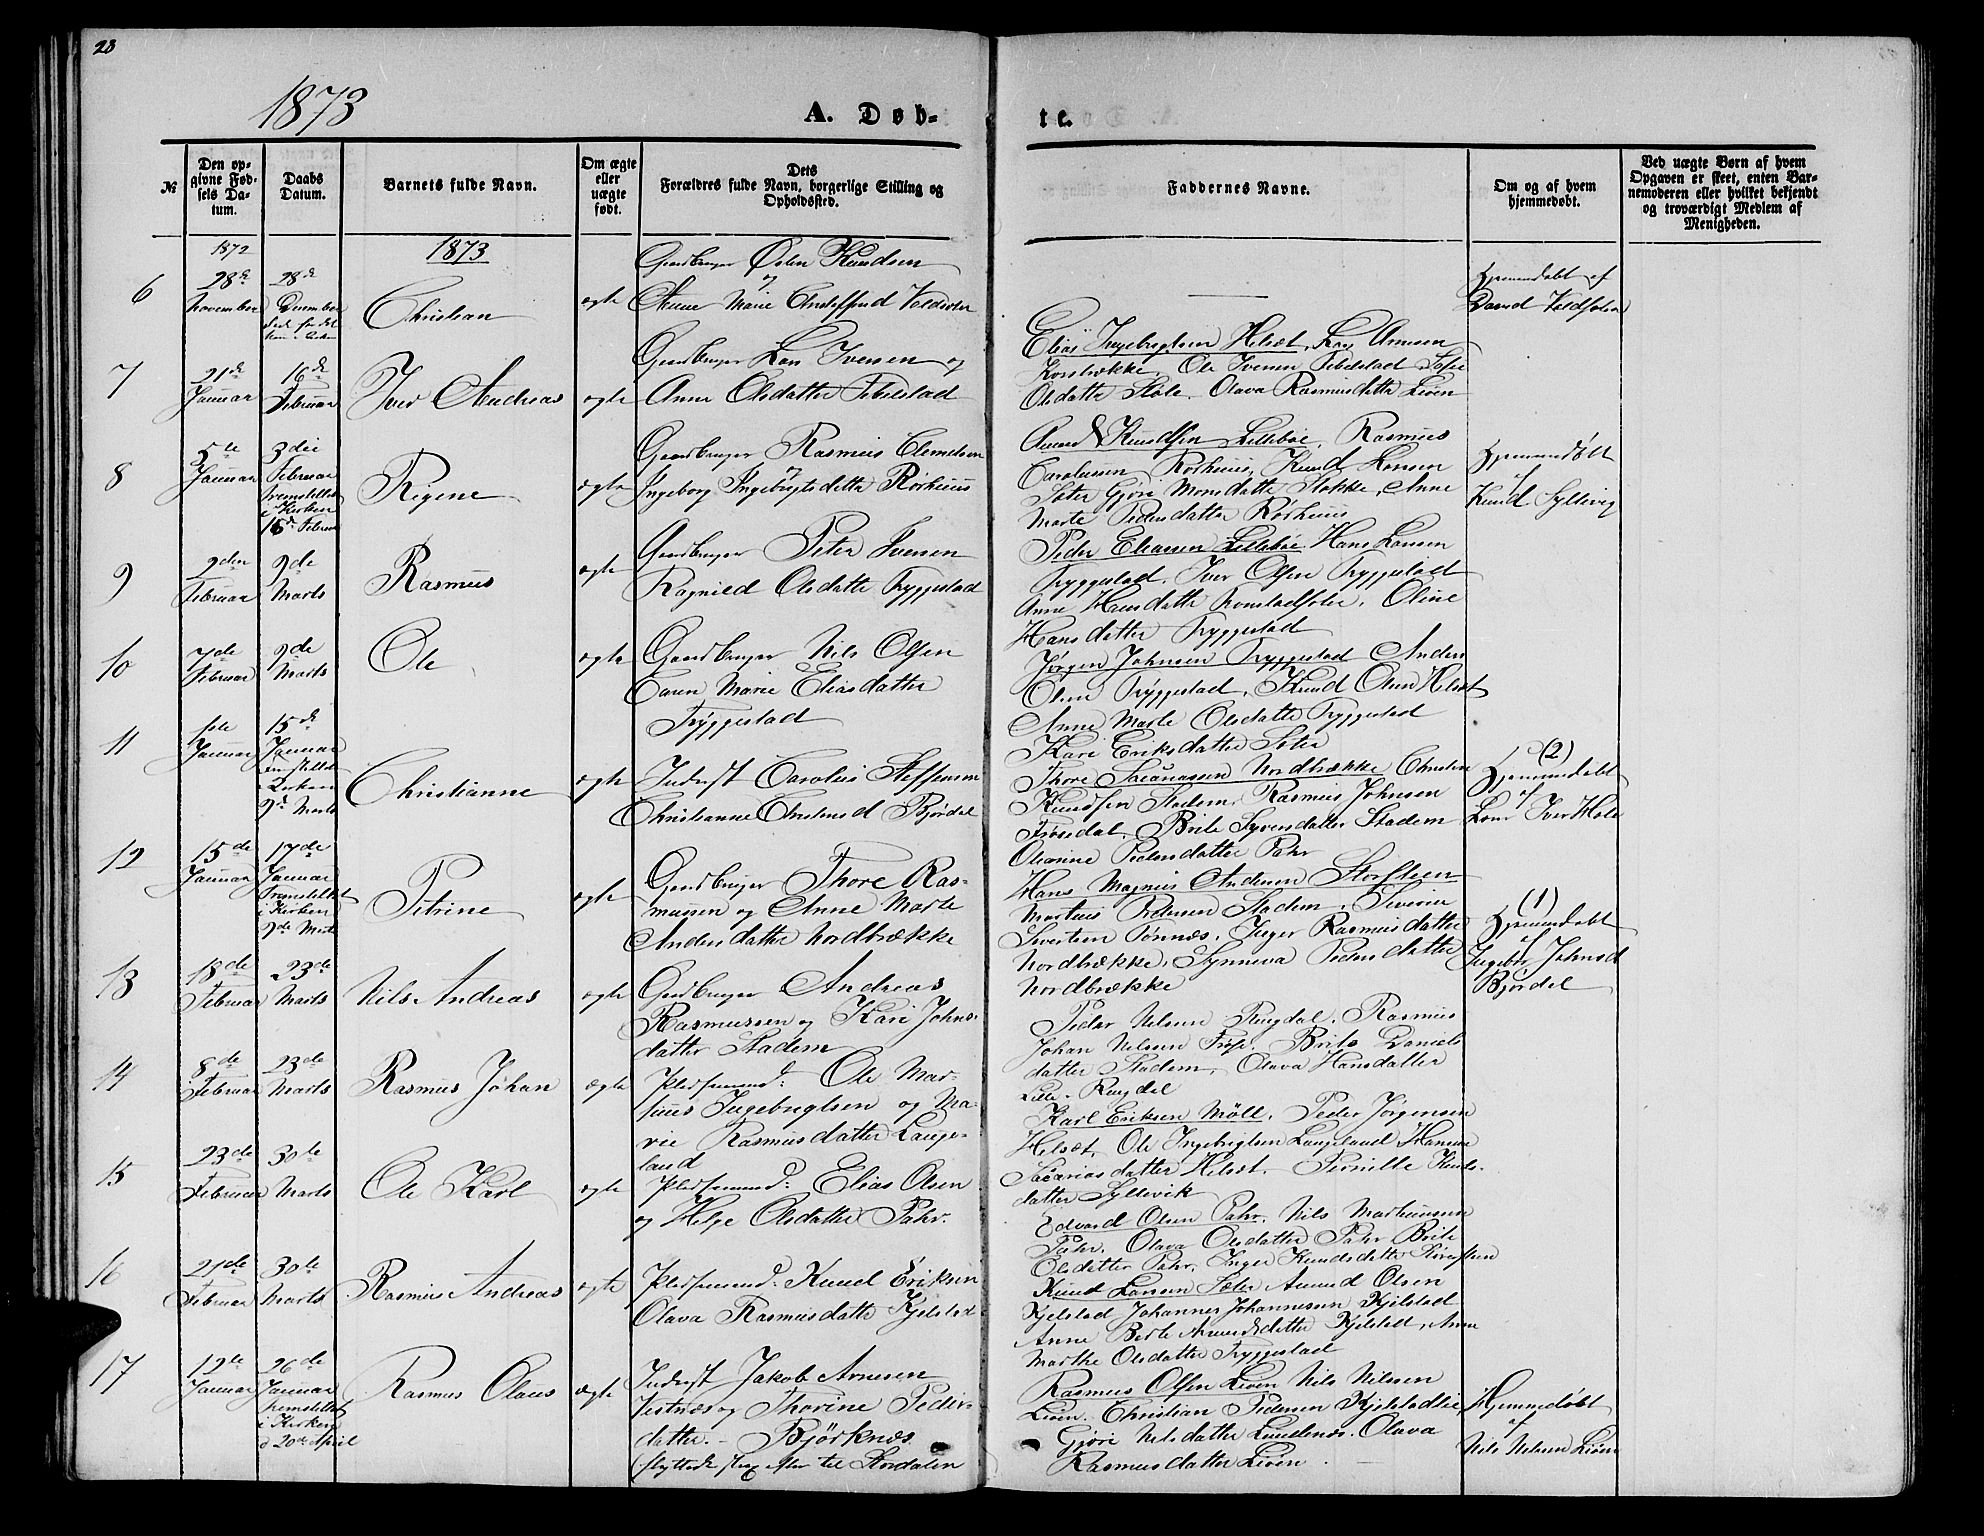 28
1873
A. Døb=
te.
№
Den op-
givne Fød-
sels Da-
tum.
Daabs
Datum.
Barnets fulde Navn.
Om ægte
eller
uægte
født.
Dets
Forældres fulde Navn, borgerlige Stilling og
Opholdssted.
Faddernes Navne.
Om og af hvem
hjemmedøbt.
Ved uægte Børn af hvem
Opgaven er skeet, enten Bar-
nemoderen eller hvilket bekjendt
og troværdigt Medlem af
Menigheden.
1872
1873
6
28de
November
28de
December
Christian
ægte
Gaardbruger Østen Knudsen
og
Marie
Hjemmedøbt af
7
21de
Januar
16de
Februar
Iver Andreas
ægte
Gaardbruger Lars Iversen og
Anne Olsdatter Tibelstad
Elias Ingebrigtsen Helset, Lars
Ole Iversen Tibelstad
Olsdatter Olava Rasmusdatter Liøen
8
5te
Januar
3die
Februar
fremstillet
i Kirken
16de Februar
Rigene
ægte
Gaardbruger Rasmus Clemetsen
Ingeborg Ingebrigtsdatter Rørhuus
Knudsen Lillebøe, Rasmus
Rørhuus, Knud Larsen
Sæter Gjøri Monsdatter Stokke, Anne
Marte Pedersdatter Rørhuus
Hjemmedøbt
af
Knud Syltevig
9
2den
Februar
9de
Marts
Rasmus
ægte
Gaardbruger Peter Iversen
Ragnild Olsdatter Tryggestad
Peder Eliassen Lillebøe, Hans Larsen
Tryggestad, Iver Olsen Tryggestad
Anne Hansdatter Oline
Hansdatter Tryggestad
10
7de
Februar
9de
Marts
Ole
ægte
Gaardbruger Nils Olsen
Caren Marie Eliasdatter
Tryggestad
Jørgen Johnsen Tryggestad Anders
Olsen Tryggestad, Knud Olsen Helset
Anne Marte Olsdatter Tryggestad
Kari Eriksdatter Sæter
11
1ste
Januar
15de
Januar
Kirken
9de Marts
Christianne
ægte
Inderst Carolus Steffensen
Christianne Christensd Bjørdal
Thore Nordbrække Christen
Knudsen Stadem, Rasmus Johnsen
Brite Syversdatter Stadem
Olianne Pedersdatter Pahr
(2)
Hjemmedøbt
af
Iver Hole
12
15de
Januar
17de
Januar
Fremstillet
i Kirken
9de Marts
Petrine
ægte
Gaardbruger Thore Ras-
mussen og Anne Marte
Andersdatter Nordbrække
Hans Magnus Andersen Storsteen
Martinus Pedersen Stadem, Siverin
Sivertsen Tønnes, Inger Rasmusdatter
Nordbrække, Synneva Pedersdatter
Nordbrække
(1)
Hjemmedøbt
af
Ingebor Johnsd
Bjørdal
13
18de
Februar
23de
Marts
Nils Andreas
ægte
Gaardbruger Andreas
Rasmussen og Kari Johns-
datter Stadem
Peder Nilsen Ringdal, Rasmus
Johan Nilsen Brite Daniels
datter Stadem, Olava Hansdatter
Lille-Ringdal
14
8de
Februar
23de
Marts
Rasmus Johan
ægte
Pladsmand: Ole Mar-
tinus Ingebrigtsen og Ma-
rie Rasmusdatter Lange-
land
Karl Eriksen Møll, Peder Jørgensen
Helset, Ole Ingebrigtsen Langeland Hanna
Sacariasdatter Helset. Pernille Knuds-
datter Syltevik
15
23de
Februar
30te
Marts
Ole Karl
ægte
Pladsmand: Elias Olsen
og Helge Olsdatter Pahr.
Edvard Olsen Pahr, Nils Martinussen
Pahr, Olava Olsdatter Pahr Brite
Olsdatter Pahr, Inger Knudsdatter
16
21de
Februar
30te
Marts
Rasmus Andreas
ægte
Pladsmand: Knud Eriksen
Olava Rasmusdatter Kjelstad
Knud Larsen Sæter Amund Olsen
Kjelstad Johannes Johannessen Kjelstad
Anne Berte Amundsdatter Kjelstad, Anne
Marthe Olsdatter Tryggestad
17
12te
Januar
26de
Januar
fremstillet
i Kirken
d 20de April
Rasmus Olaus
ægte
Inderst Jakob Arnesen
Vestnæs og Thorine Peders-
datter.- Bjørknæs
flyttede strax efter til Stordalen
Rasmus Olsen Liøen Nils Nilsen
Liøen. Christian Pedersen Kjelstadlie,
Gjøri Nilsdatter Lundenæs. Olava
Rasmusdatter Liøen
Hjemmedøbt
af
Nils Nilsen Liøen